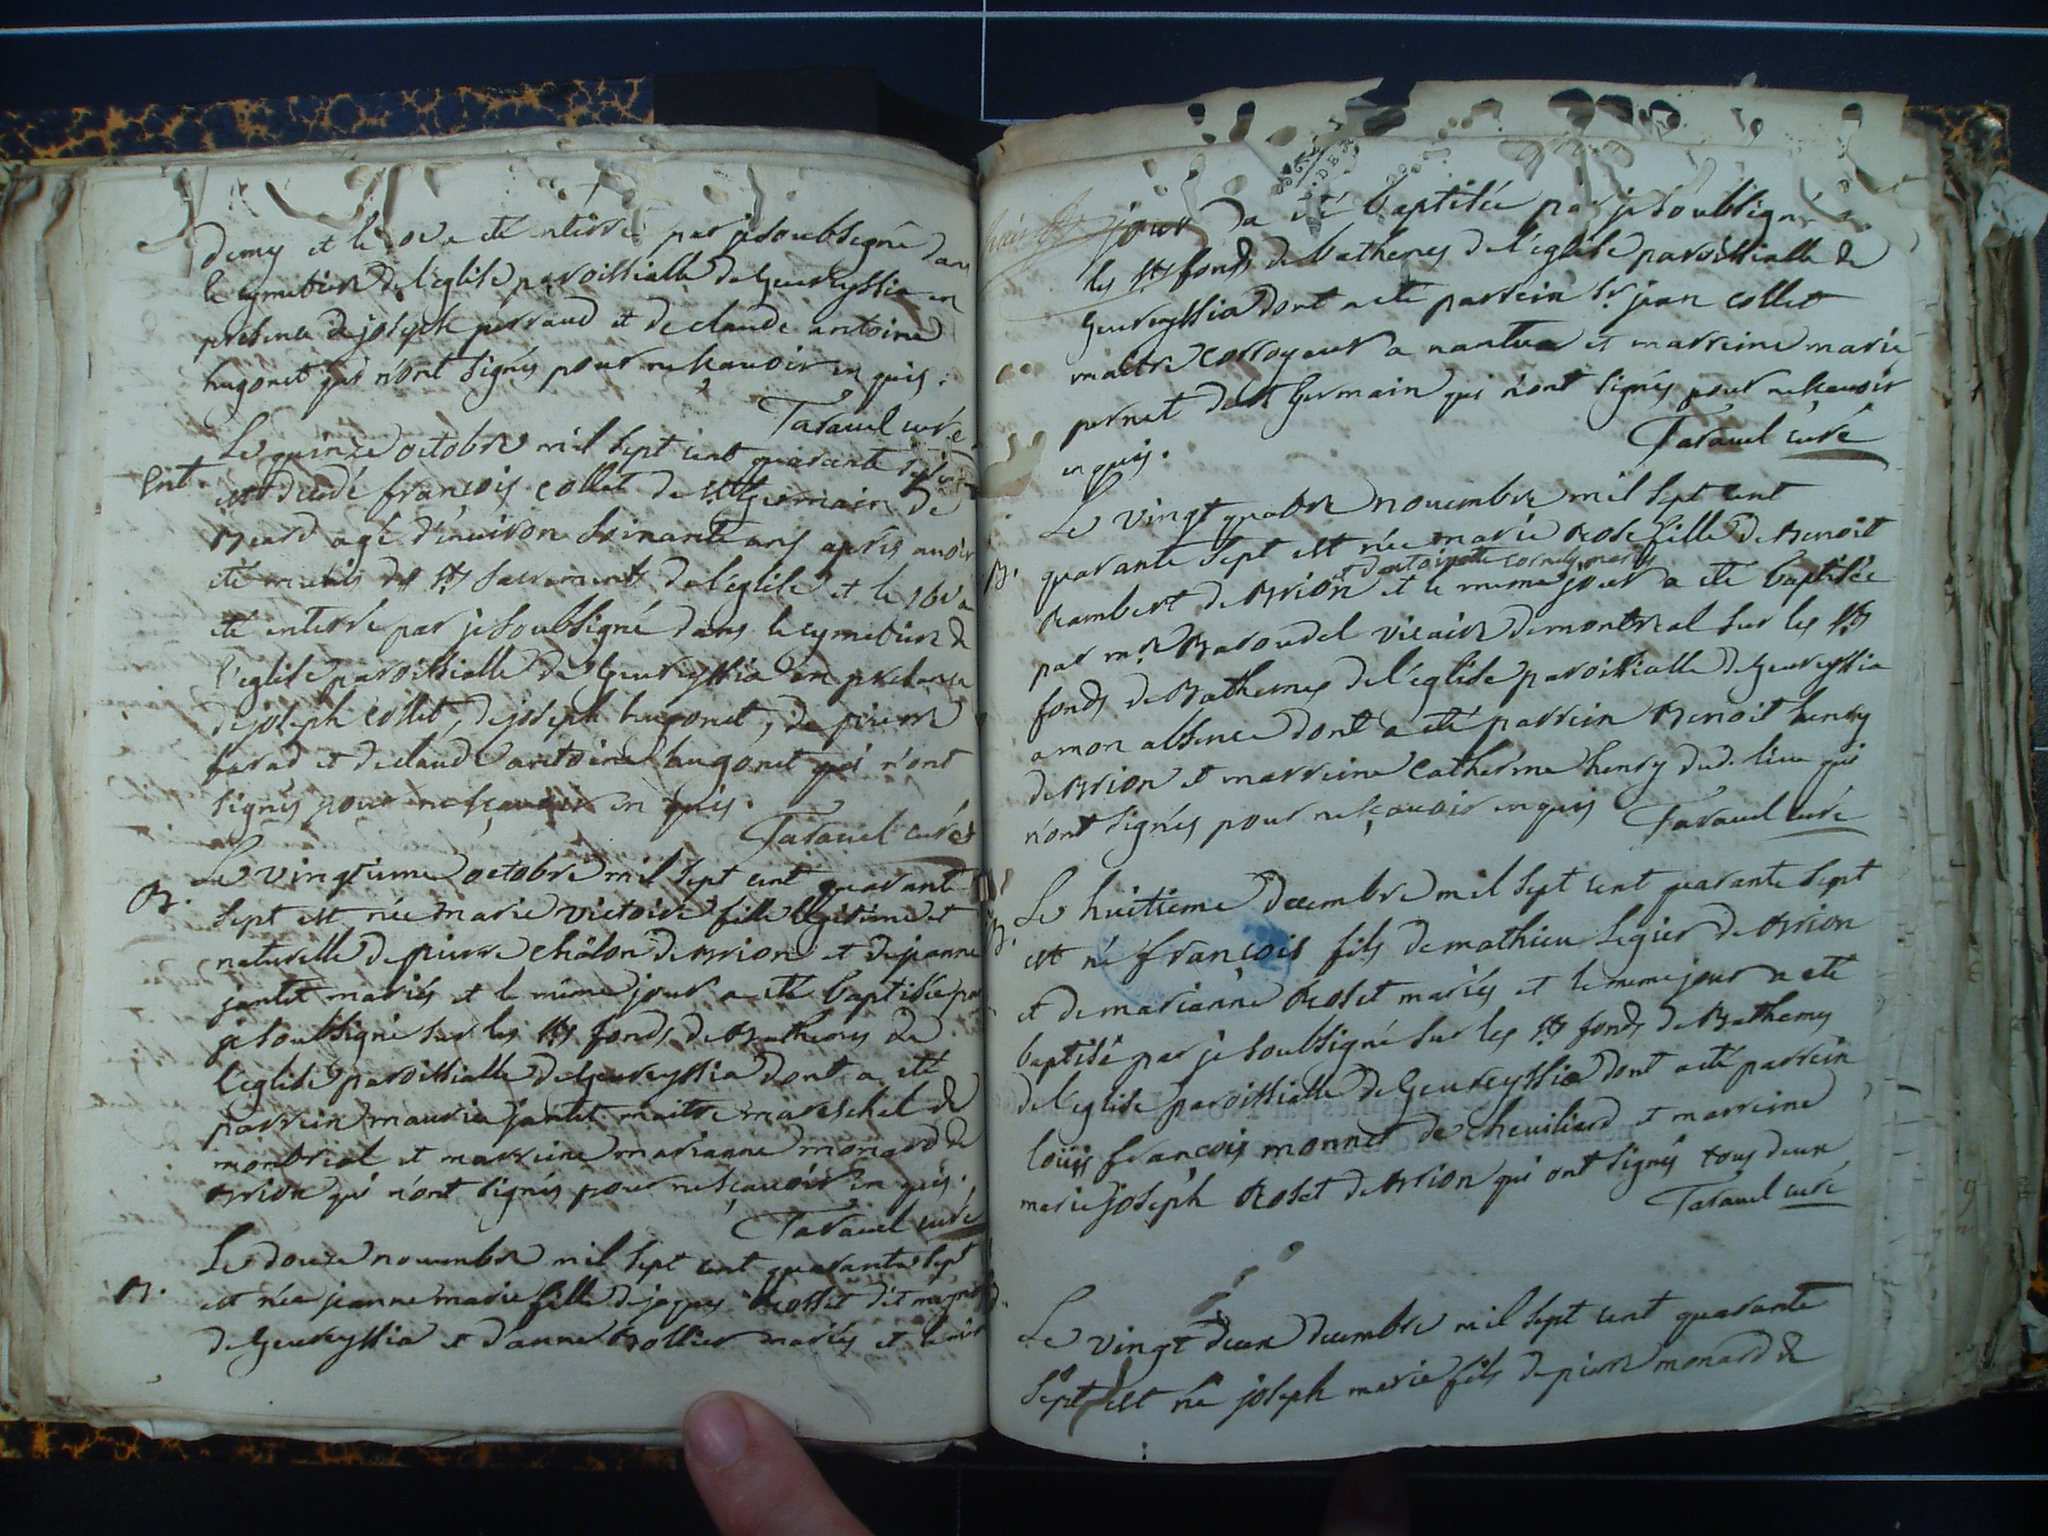 demy et le a été enterré par je soubsigné dans
le cymetiere de l'eglise paroissialle de geureyssia en
presence de joseph perraud et de claude antoine
hugonet qui n'ont signés pour ne scavoir en quis.
Taravel curé
Ent. Le quinze octobre mil sept cent quarante sept
est decedé françois collet de st germain de
Beard agé d'environ soixante ans apres avoir
été munis des sts sacrements de l'eglise et le 16 a
été enterré par je soubsigné dans le cymetiere de
l'eglise paroissialle de geureyssia en presence
de joseph collet, de joseph hugonet, de pierre
farad et de claude antoine hugonet qui n'ont
signés pour ne sçavoir en quis.
Taravel curé
B. Le vingtieme octobre mil sept cent quarante
sept est née marie victoire fille legitime et
naturelle de pierre châlon de Brion et de jeanne
jantet mariés et le même jour a été baptisée par
je soubsigné sur les sts fonds de Bathemes de
l'eglise paroissialle de geureyssia dont a été
parrein maurice jantet maitre mareschal de
montreal et marreine marianne monard de
Brion qui n'ont signés pour ne sçavoir en quis.
Taravel curé
B. Le douze novembre mil sept cent quarante sept
est née jeanne marie fille de jaques Rosset dit
de geureyssia et d'anne Bollier mariés et le
jour a été baptisée par je soubsigné
les sts fonds de bathemes de l'eglise paroissialle de
geureyssia dont a été parrein sr. jean collet
maitre corroyeur a nantua et marreine marie
pernet de st germain qui n'ont signés pour ne scavoir
en quis.
Taravel curé
Le vingt quatre novembre mil sept cent
B. quarante sept est née marie Rose fille de Benoit
et d'antoinette cornely mariés
Rambert de Brion et le meme jour a été baptisée
par mr. Baroudel vicaire de montreal sur les sts
fonds de Bathemes de l'eglise paroissialle de geureyssia
a mon absence dont a été parrein Benoit henry
de Brion et marreine catherine henry dud. lieu qui
n'ont signés pour ne sçavoir en quis Taravel curé
Le huitieme decembre mil sept cent quarante sept
B. est né françois fils de mathieu Legier de Brion
et de marianne Roset mariés et le meme jour a été
baptisé par je soubsigné sur les sts fonds de Bathemes
de l'eglise paroissialle de geureyssia dont a été parrein
loüis françois monnet de cheviliard et marreine
marie joseph Roset de Brion qui ont signés tous deux
Taravel curé
Le vingt deux decembre mil sept cent quarante
sept est né joseph marie fils de pierre monard de